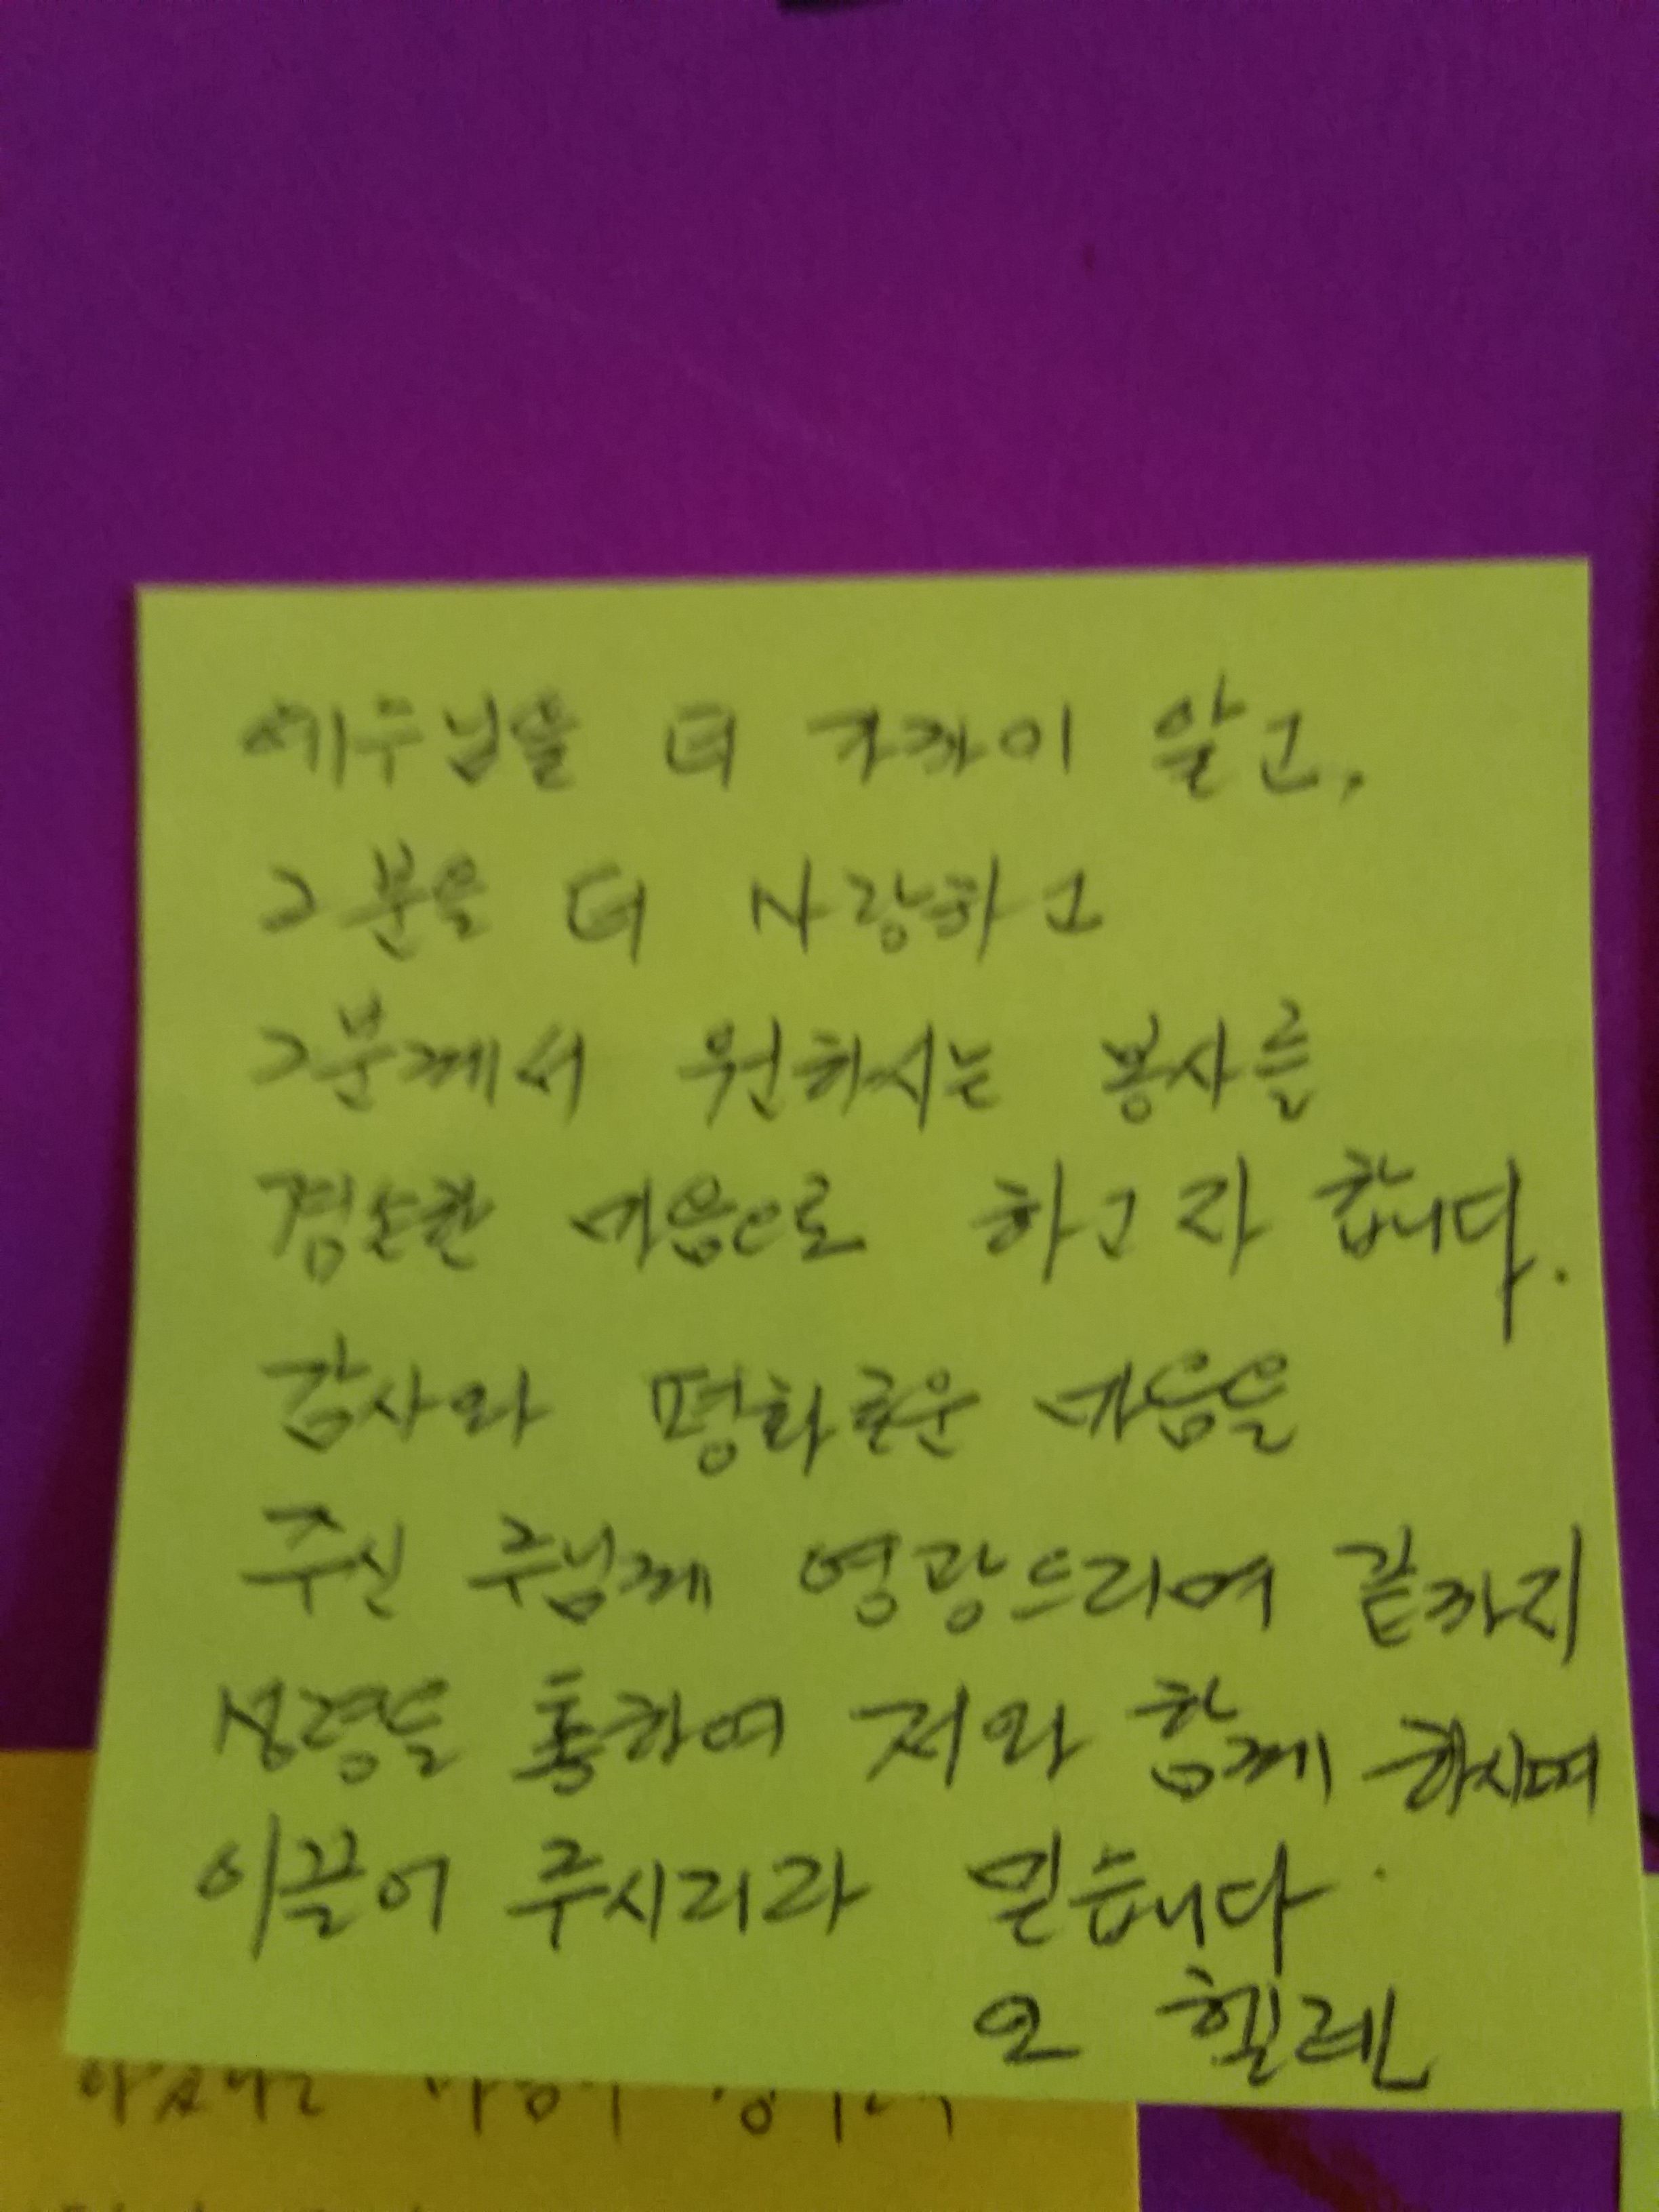 예수님을 더 가까이 알고,
그분을 더 사랑하고
그분께서 원하시는 봉사를
겸손한 마음으로 하고자 합니다.
감사와 평화로운 마음을
주신 주님께 영광드리며 끝까지
성령을 통하여 저와 함께 하시며
이끌어 주시리라 믿습니다.
오 헬레나